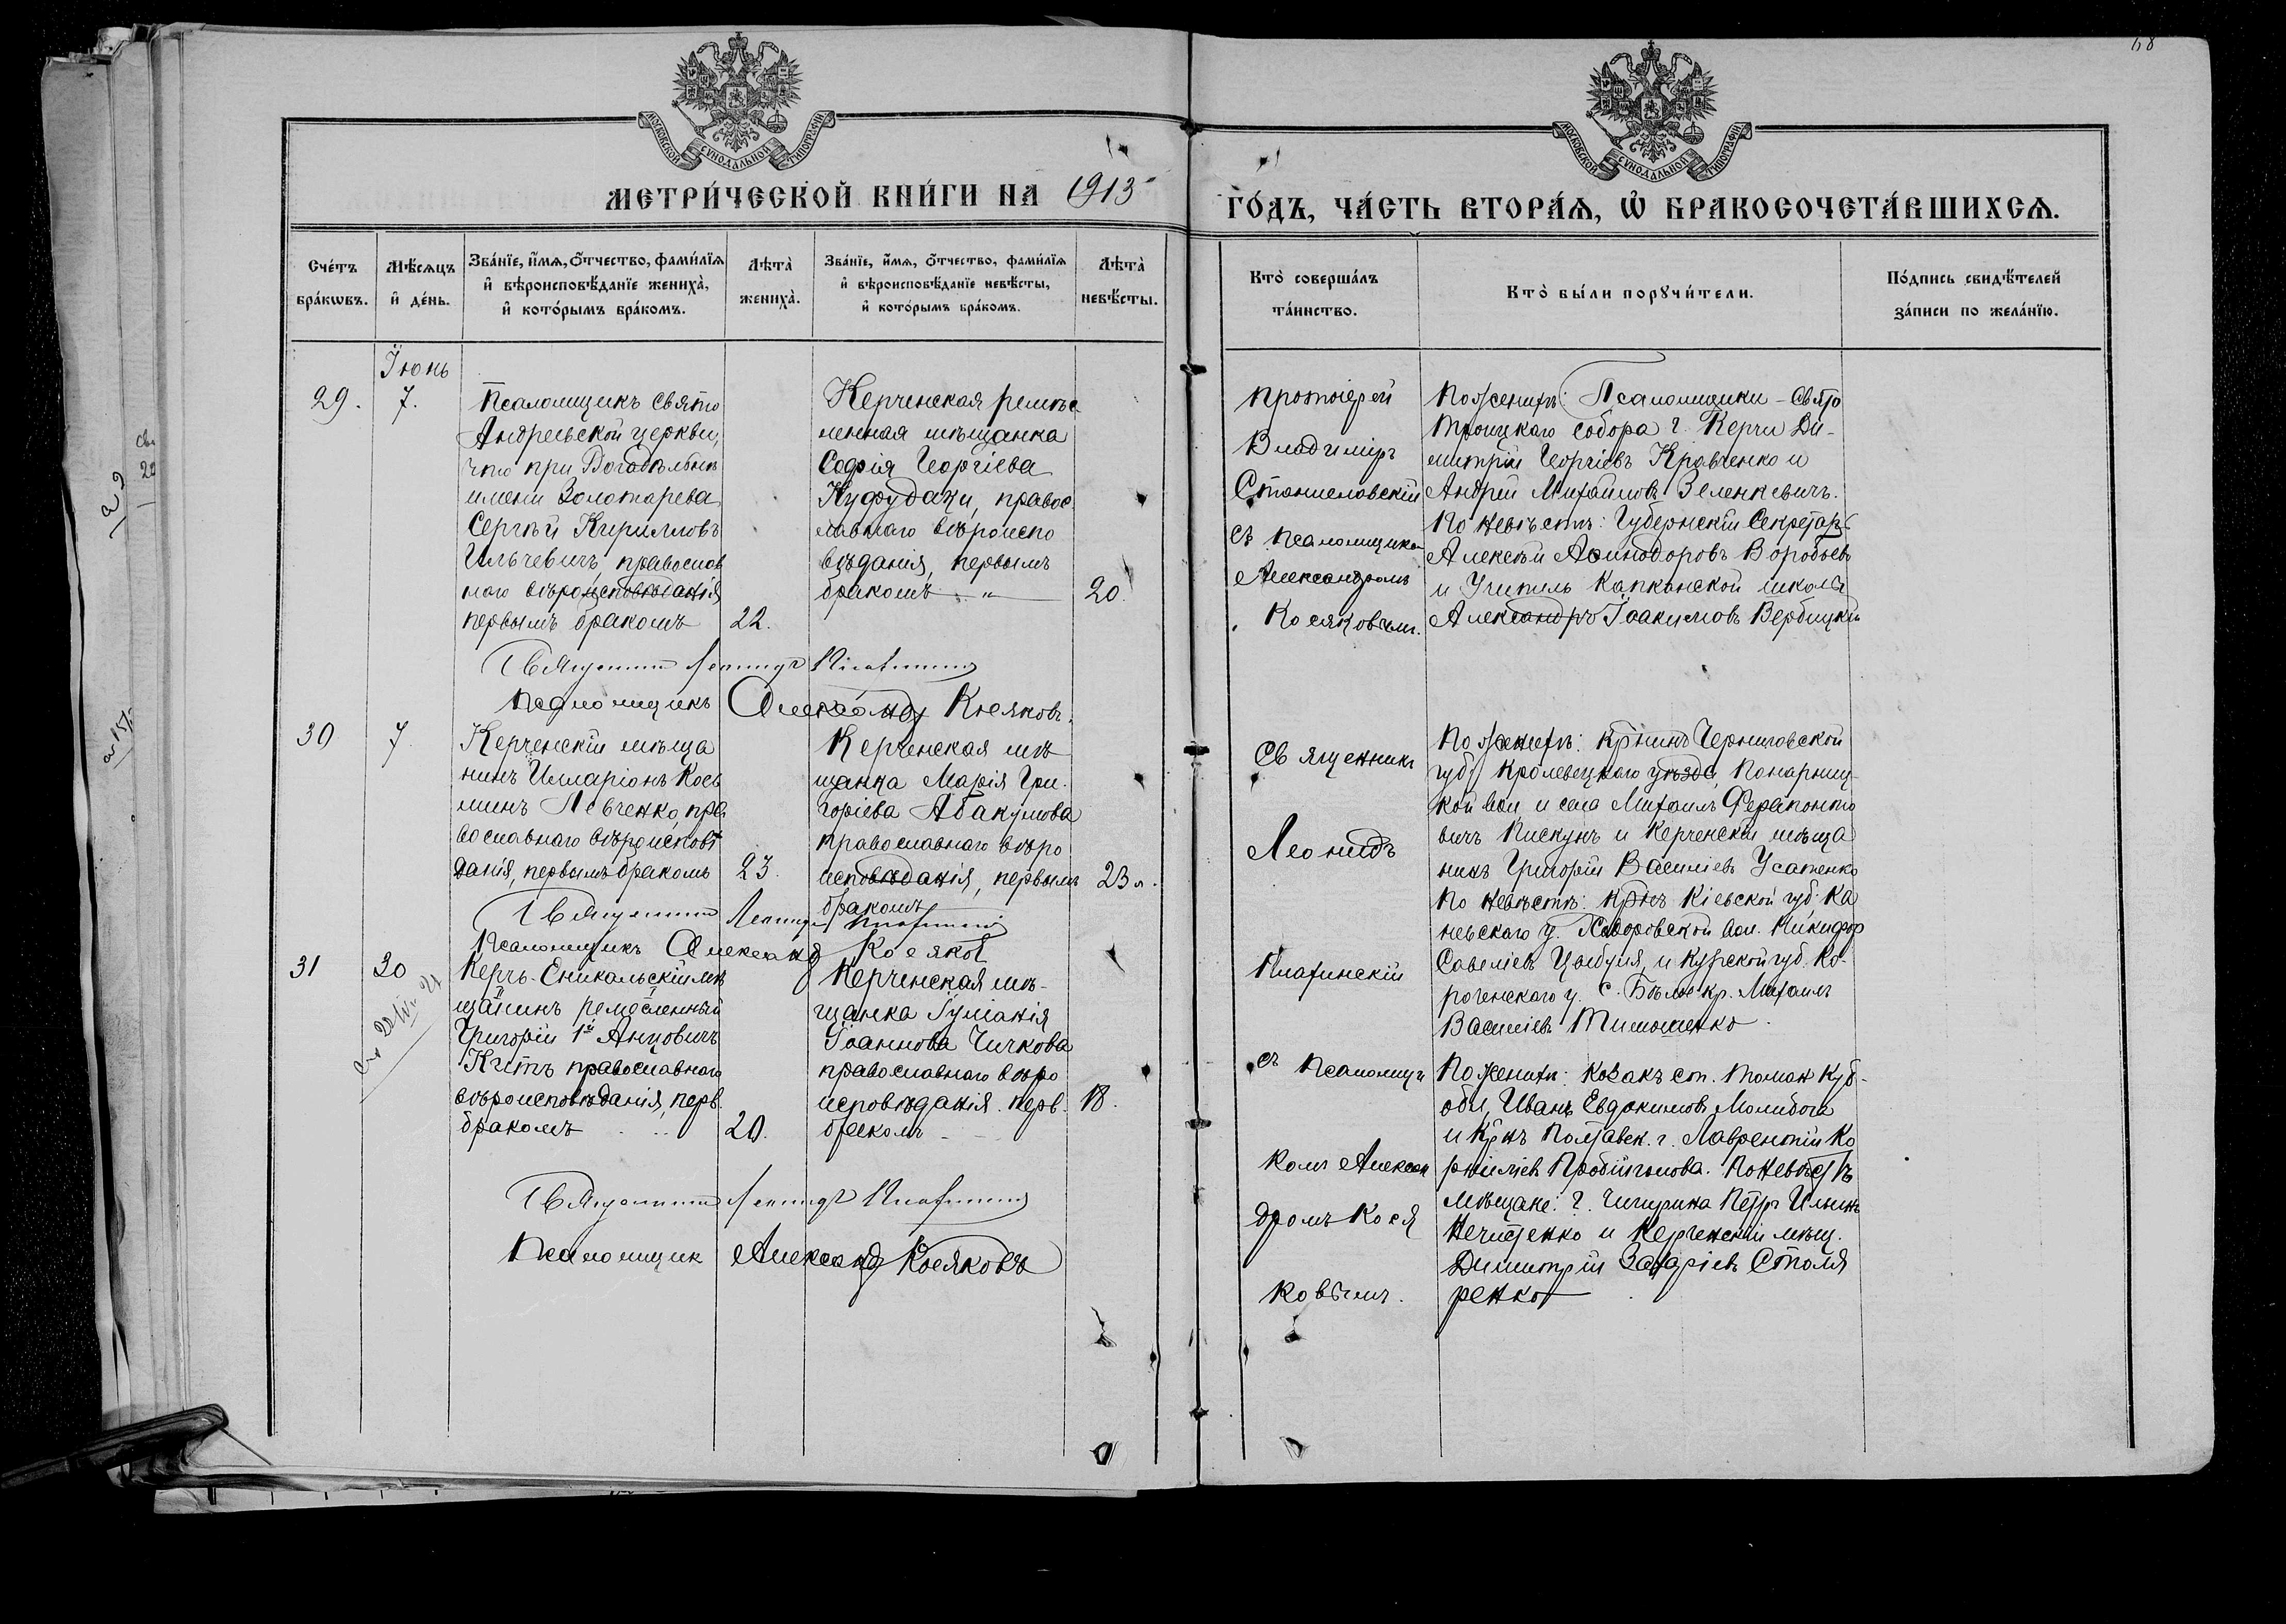 68
МОСКОВСКОЙ СУНОДАЛЬНОЙ ТИПОГРАФИИ
МОСКОВСКОЙ СУНОДАЛЬНОЙ ТИПОГРАФИИ
МЕТРИ́ЧЕСКОЙ КНИ́ГИ НА 1913
ГО́ДЪ, ЧА́СТЬ ВТОРА́Ѧ, Ѽ БРАКОСОЧЕТА́ВШИХСѦ.
Сче́тъ бра́кωвъ.
Мѣ́сѧцъ и҆ де́нь.
Зва́нїе, и҆́мѧ, ѻ҆́тчество, фами́лїѧ
и҆ вѣроисповѣ́данїе жениха̀,
и҆ кото́рымъ бра́комъ.
Лѣта̀ жениха̀.
Зва́нїе, и҆́мѧ, ѻ҆́тчество, фами́лїѧ
и҆ вѣроисповѣ́данїе невѣ́сты,
и҆ кото́рымъ бра́комъ.
Лѣта̀ невѣ́сты.
Кто̀ соверша́лъ
та́инство.
Кто̀ бы́ли порꙋчи́тели.
По́дпись свидѣ́телей
за́писи по жела́нїю.
Іюнь
29. 7.
Псаломщикъ Свято
Андреевской церкви,
что при Богадѣльнѣ
имени Золотарева,
Сергѣй Кирилловъ
Ильчевичъ, православ
наго вѣроисповѣданія
первымъ бракомъ 22.
Керченская ремес
ленная мѣщанка
Софія Георгіева
Куфудаки, правос
лавнаго вѣроиспо
вѣданія, первымъ
бракомъ „ 20.
Протоіерей
Владиміръ
Станиславскій
съ псаломщикомъ
Александромъ
Косяковымъ.
По женихѣ: Псаломщики - Свято
Троицкаго собора г. Керчи Ди-
митрій Георгіевъ Кравченко и
Андрей Михайловъ Зеленкевичъ.
По невѣстѣ: Губернскій Секретарь
Алексѣй Аѳинодоровъ Воробьевъ
и Учитель Капканской школы
Александръ Іоакимовъ Вербицкій
Священникъ Леонидъ
Псаломщикъ Александръ Косяковъ.
30 7.
Керченскій мѣща
нинъ Илларіонъ Кось
минъ Левченко, пра
вославнаго вѣроисповѣ
данія, первымъ бракомъ 23.
Керченская мѣ
щанка Марія Гри-
горіева Абакумова
православнаго вѣро
исповѣданія, первымъ 23 л.
бракомъ
Священникъ
Леонидъ
По женихѣ: кр﻿нинъ Черниговской
губ. Кролевецкаго уѣзда, Понарниц-
кой вол. и села Михаилъ Ферапонто
вичъ Пискунъ и Керченскій мѣща
нинъ Григорій Василіевъ Усатенко
По невѣстѣ: крнъ Кіевской губ. Ка
невскаго у. вол. Никифоръ
Савеліевъ Цыбуля, и Курской губ. Ко-
роченскаго у. с. кр. Михаилъ
Василіевъ Тимошенко.
Священникъ Леонидъ
Псаломщикъ Александръ Косяковъ
31 20
Керчь-Еникальскій мѣ
щанинъ ремесленный
Григорій 1й
Китъ православнаго
вѣроисповѣданія, перв.
бракомъ 20.
Керченская мѣ-
щанка Іуліанія
Іоаннова Чичкова
православнаго вѣро
исповѣданія. перв. 18.
бракомъ
съ псаломщи
комъ Алексан
дромъ Кося
ковымъ.
По женихѣ: козакъ ст. Томан Куб-
обл. Иванъ Евдокимовъ Молибога
и крнъ Полтавск. г. Лаврентій Ко
рниліевъ. По невѣстѣ
мѣщане: г. Чигирина Петръ Ильинъ
Нечитенко и Керченскій мѣщ.
Димитрій Захаріевъ Столя
ренко
Священникъ Леонидъ
Псаломщикъ Александръ Косяковъ